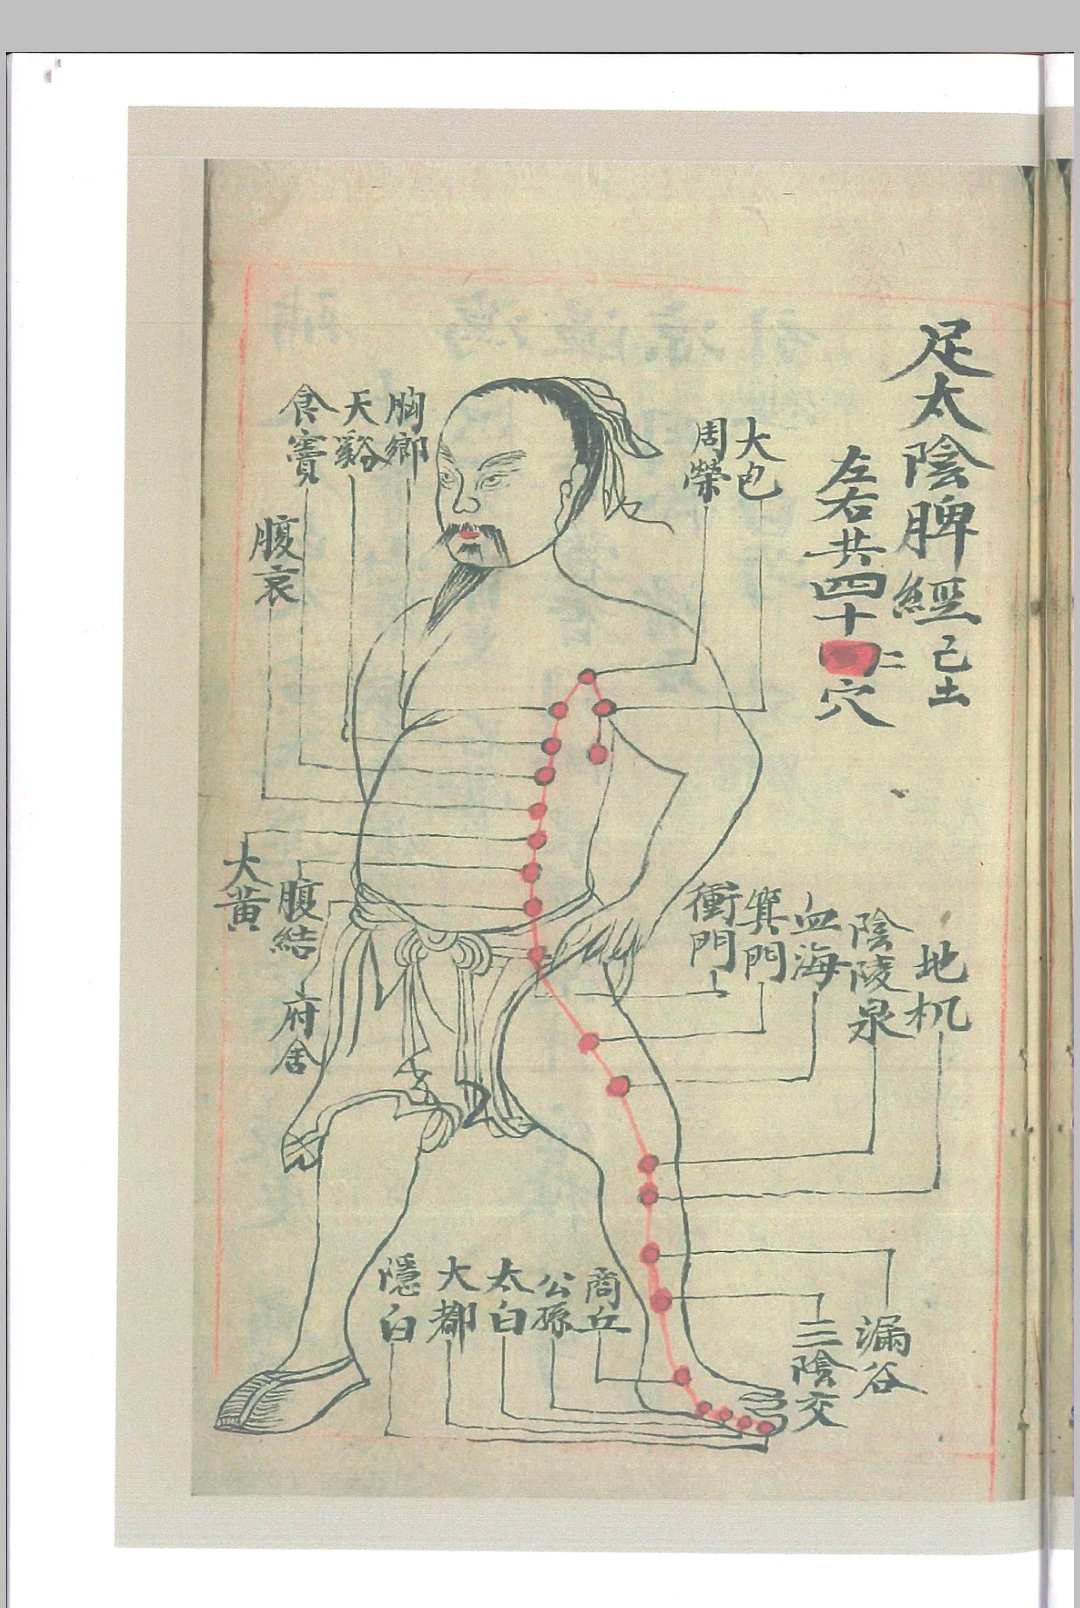 足太陰脾經己土
左右共四十二穴
大包
周榮
胸鄉
天谿
食竇
腹哀
大黄
腹結
府舍
衝門
箕門
血海
陰陵泉
地机
漏谷
三陰交
商丘
公孫
太白
大都
隱白